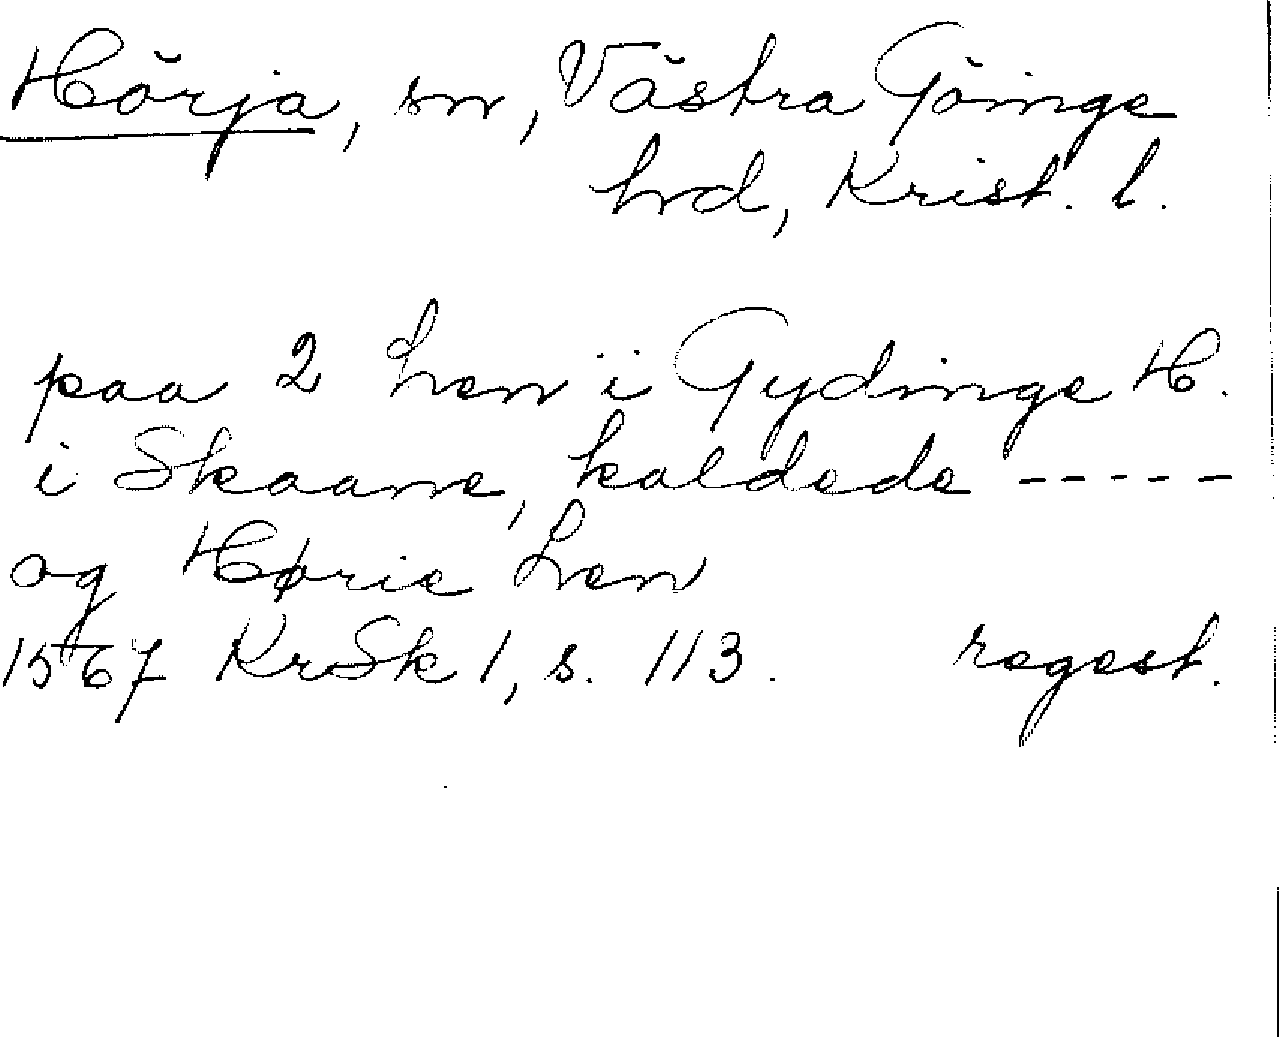 Hörja, sn, Västra Göinge
hrd, Krist. l.
paa 2 Len i Gydinge H.
i Skaane, kaldede -----
og Hørie Len
1567 KrSk 1, s. 113. regest.